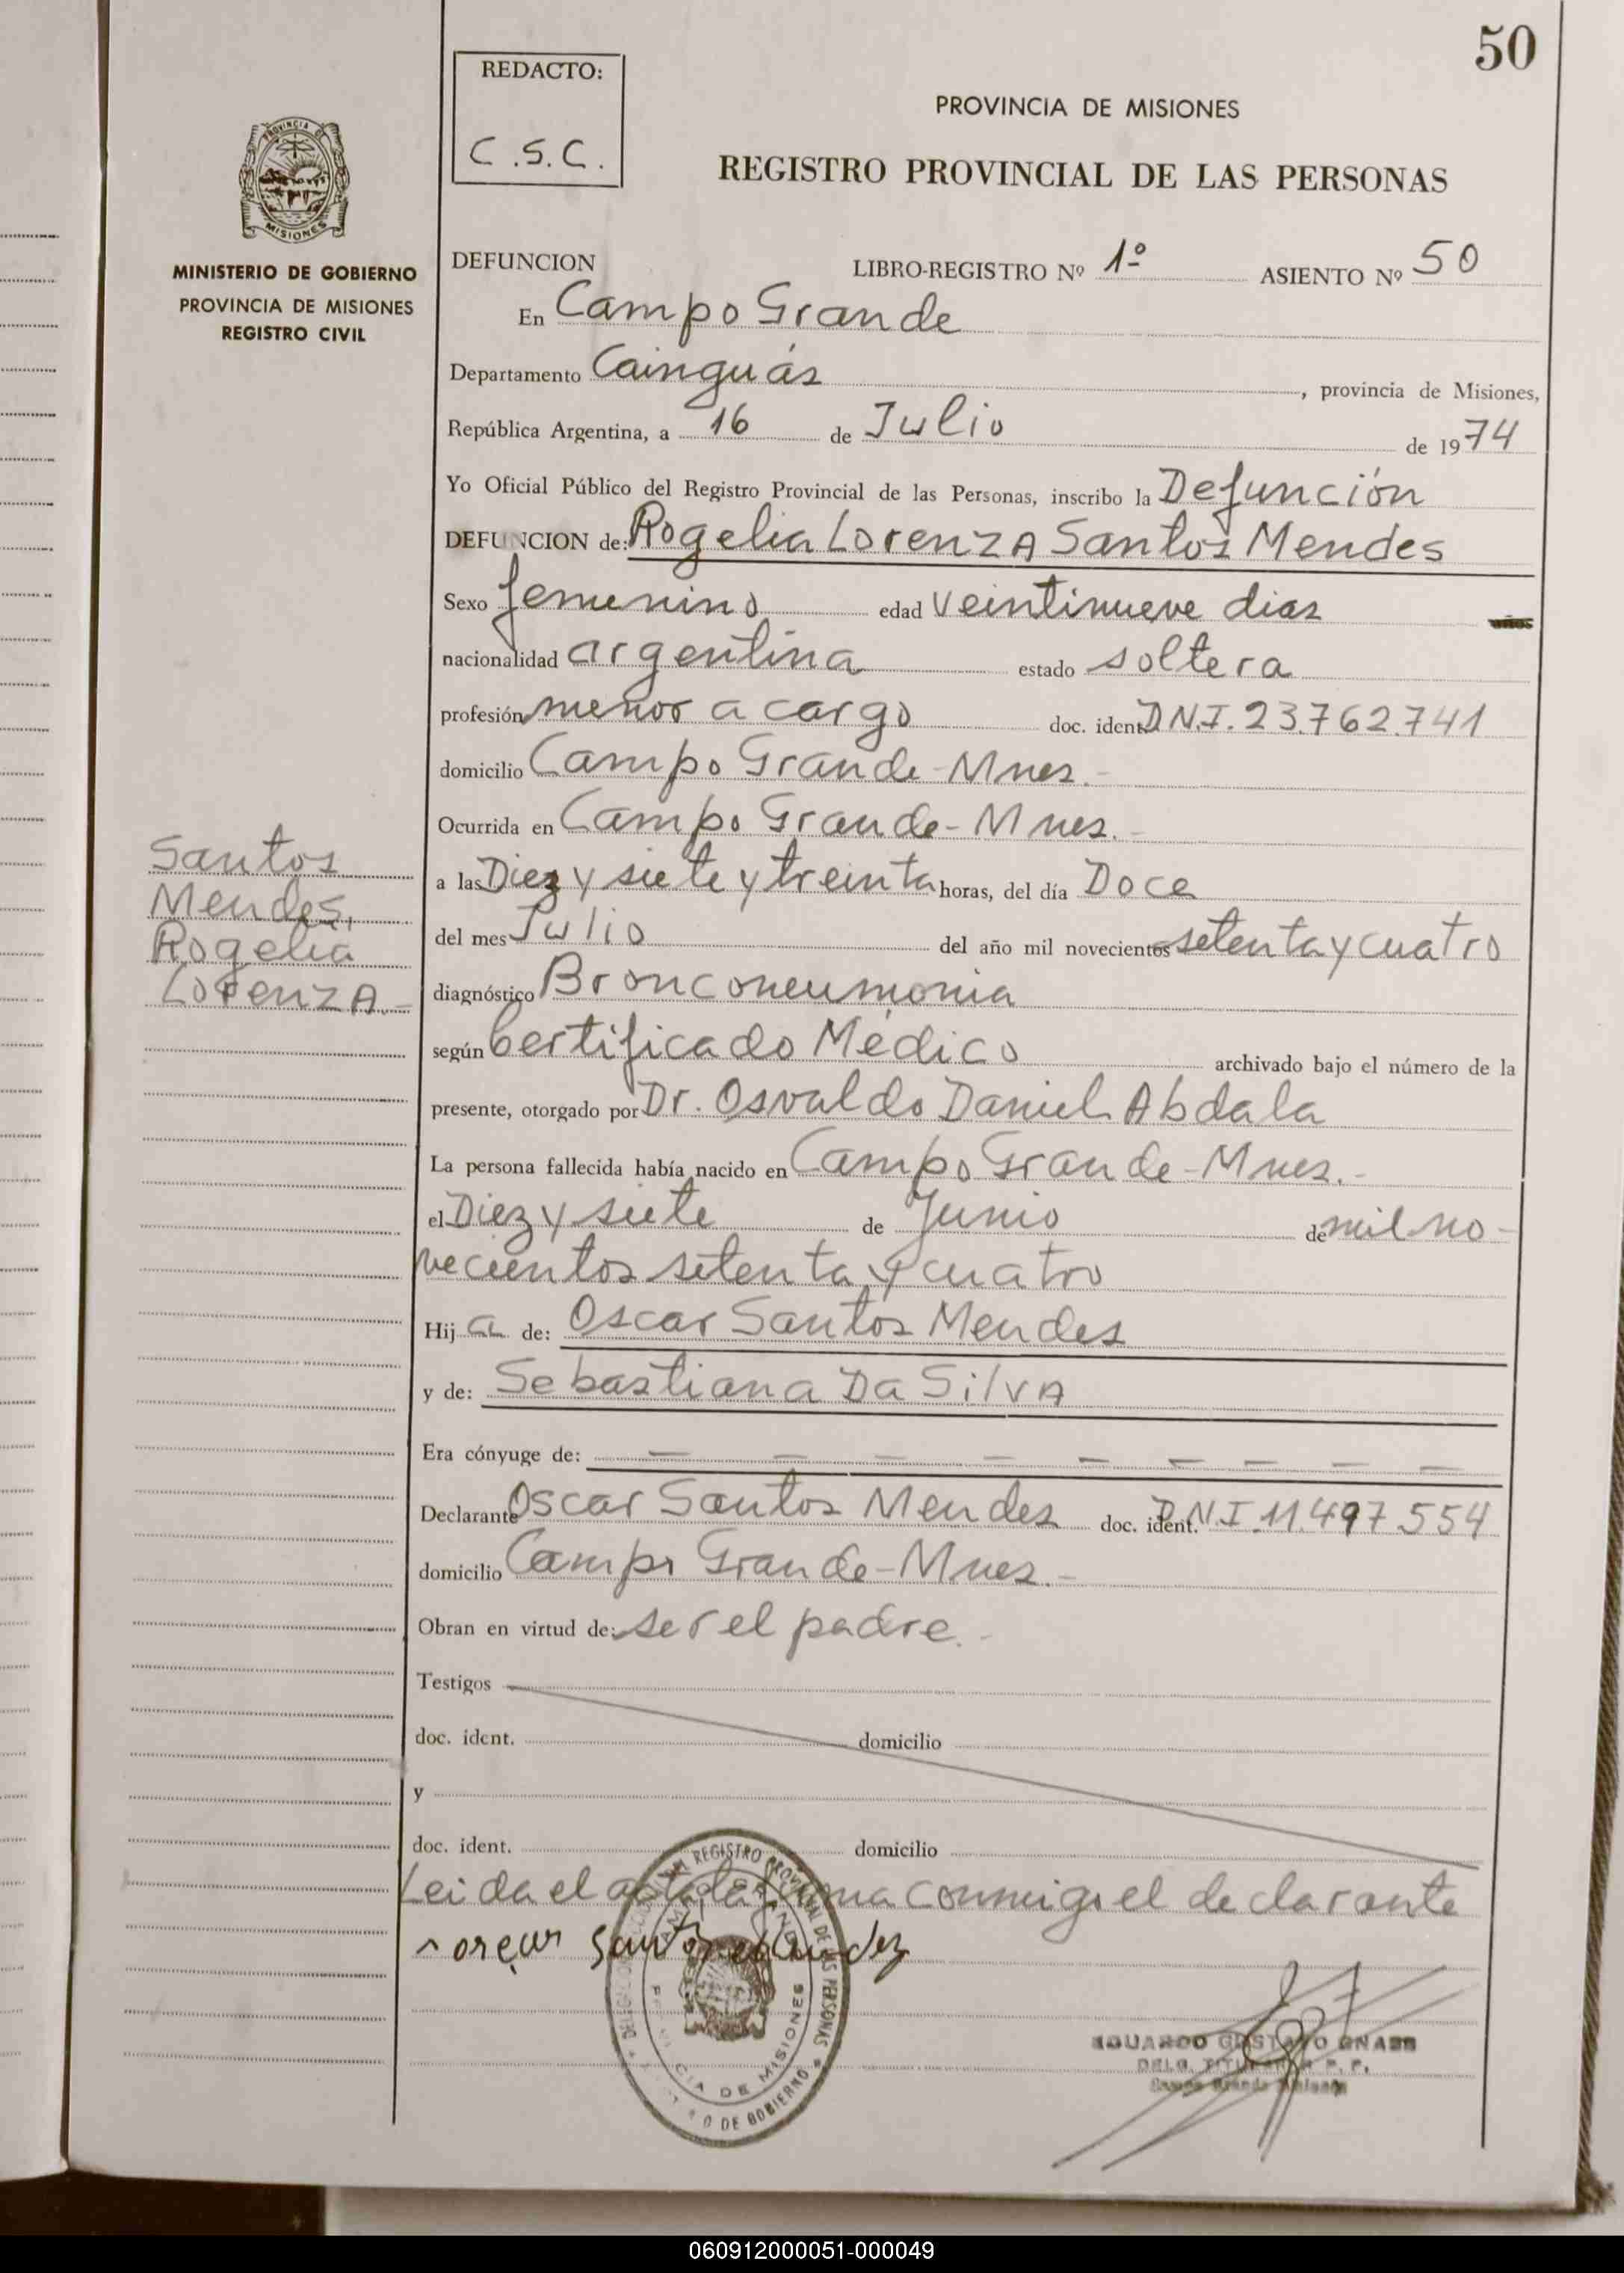 50
REDACTO:
C.S.C.
PROVINCIA DE MISIONES
REGISTRO PROVINCIAL DE LAS PERSONAS
PROVINCIA DE
MISIONES
MINISTERIO DE GOBIERNO
PROVINCIA DE MISIONES
REGISTRO CIVIL
DEFUNCION LIBRO-REGISTRO Nº 1º ASIENTO Nº 50
En Campo Grande
Departamento Cainguás, provincia de Misiones,
República Argentina, a 16 de Julio de 1974
Yo Oficial Público del Registro Provincial de las Personas, inscribo la Defunción
DEFUNCION de: Rogelia Lorenza Santos Mendes
Sexo femenino edad veintinueve dias años
nacionalidad argentina estado soltera
profesión menor a cargo doc. ident. D.N.I. 23.762.741
domicilio Campo Grande-Mnes.-
Ocurrida en Campo Grande-Mnes.-
a las Diez y siete y treinta horas, del día Doce
del mes Julio del año mil novecientos setenta y cuatro
diagnóstico Bronconeumonia
según Certificado Médico archivado bajo el número de la
presente, otorgado por Dr. Osvaldo Daniel Abdala
La persona fallecida había nacido en Campo Grande-Mnes.-
el Diez y siete de Junio de mil no-
vecientos setenta y cuatro
Hij a de: Oscar Santos Mendes
y de: Sebastiana Da Silva
Era cónyuge de: — — — — — — — — —
Declarante Oscar Santos Mendes doc. ident. D.N.I. 11.497.554
domicilio Campo Grande-Mnes.-
Obran en virtud de: ser el padre.-
Testigos
doc. ident. domicilio
y
doc. ident. domicilio
Leida el acta la firma conmigo el declarante
Santos
Mendes,
Rogelia
Lorenza.-
REGISTRO PROVINCIAL DE LAS PERSONAS
DE GOBIERNO
CIA DE MISIONES
EDUARDO GUSTAVO
DELG. TITULAR R. P. P.
Campo Grande Misiones
060912000051-000049